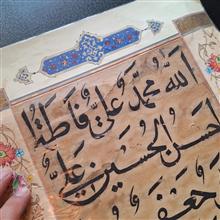 الله محمد علی فاطمة
الحسن الحسین علی
جعفر